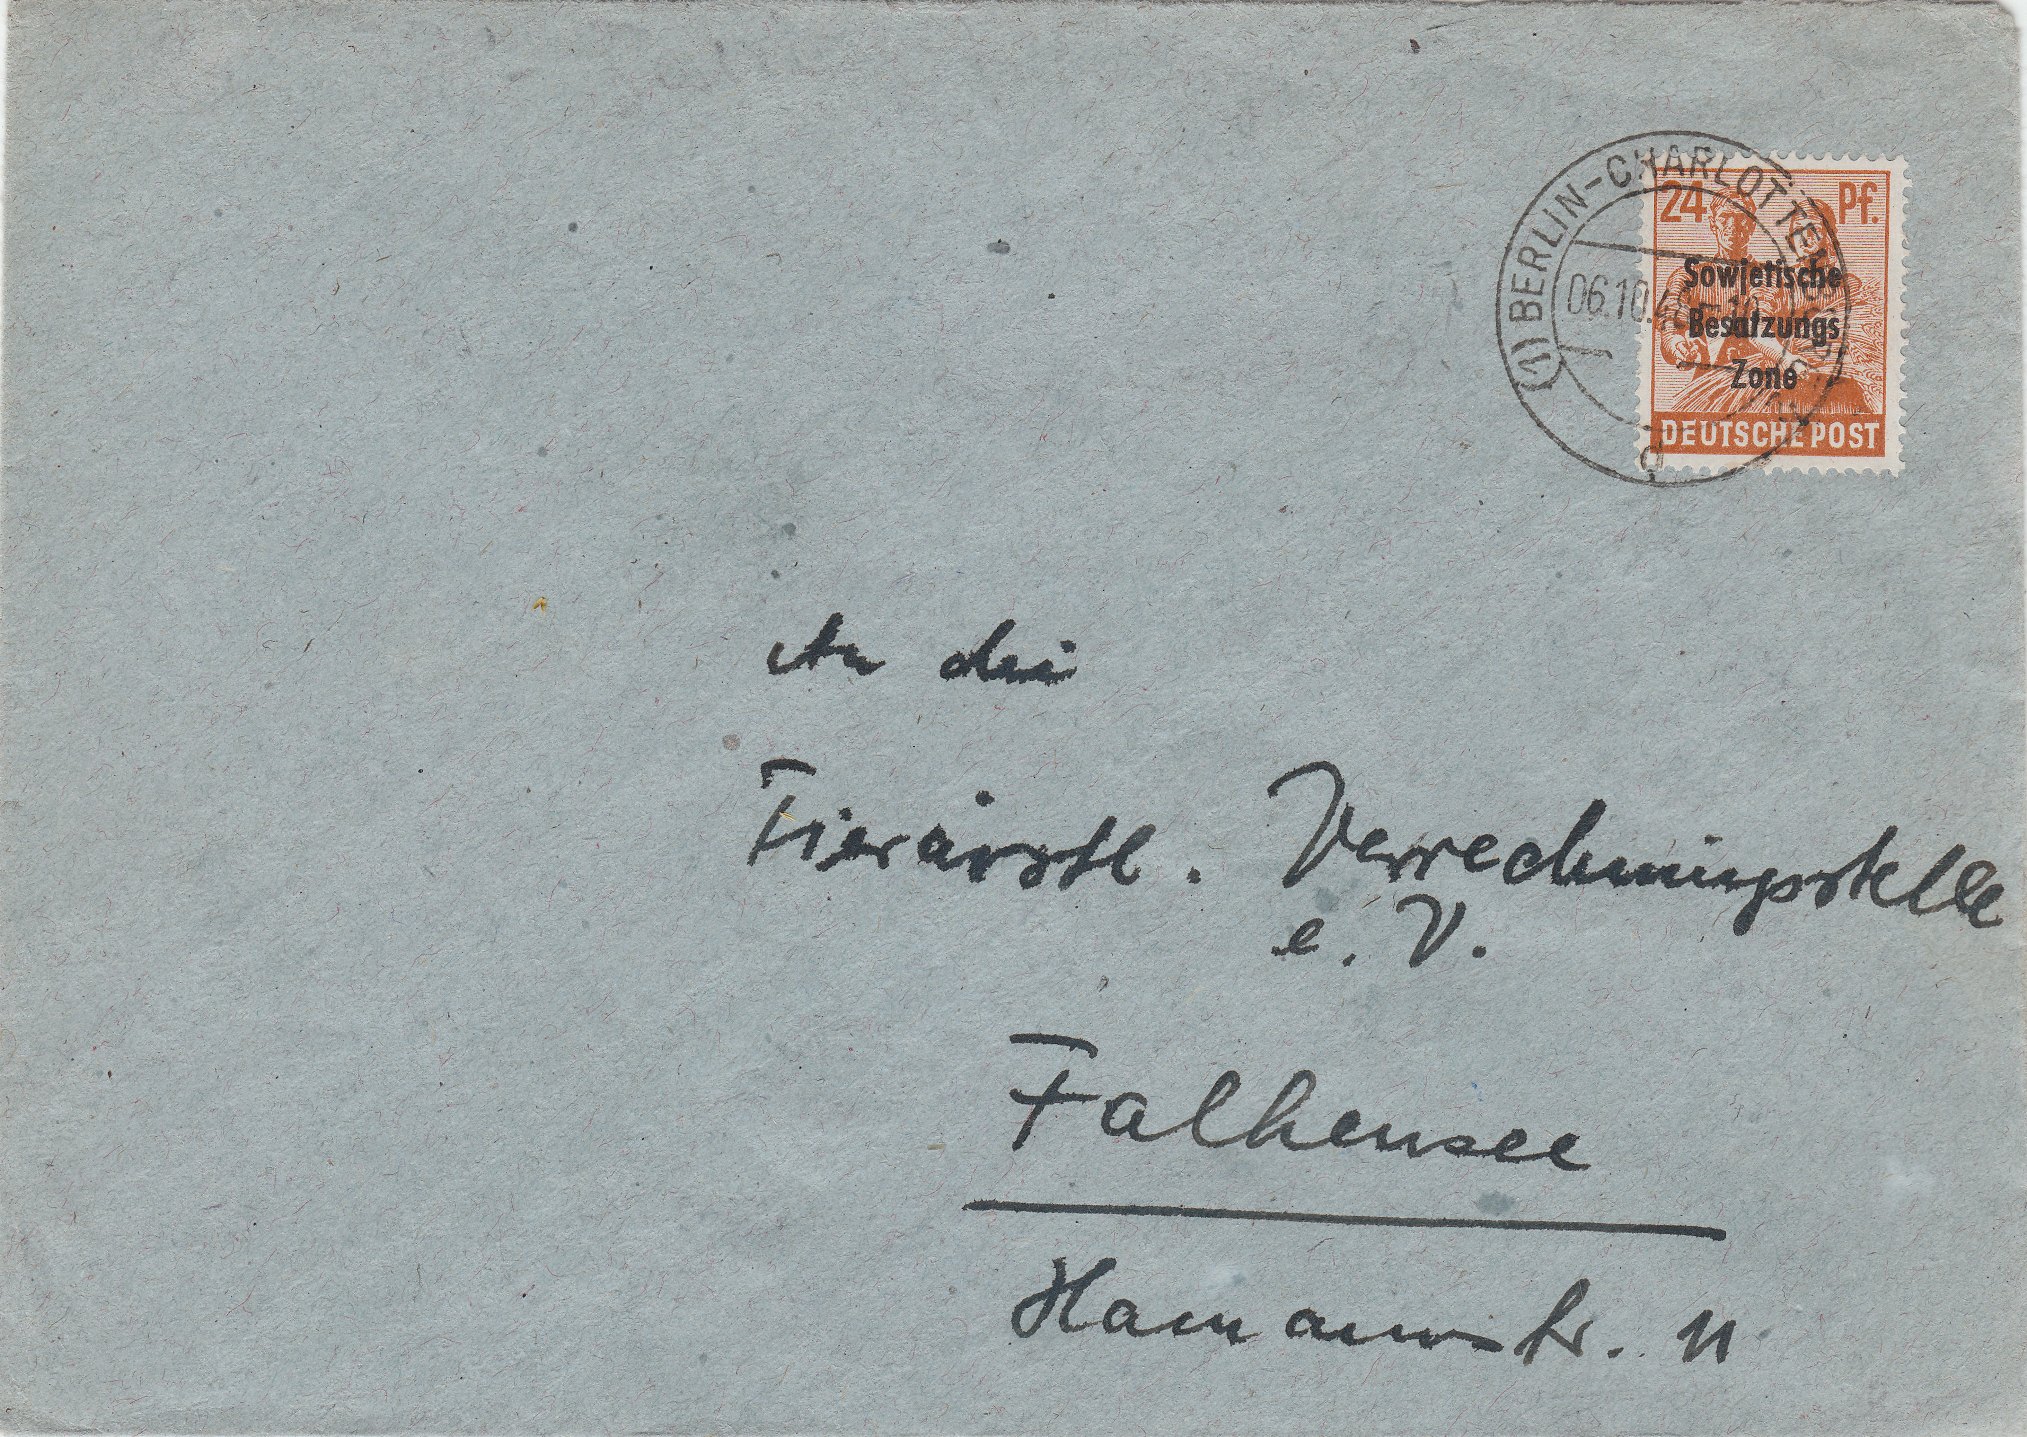 (1) BERLIN-CHARLOTTENBURG
06.10.48
d
24 Pf.
Sowjetische
Besatzungs
Zone
DEUTSCHE POST
An die
Tierärztl. Verrechnungsstelle
e. V.
Falkensee
Hamannstr. 11